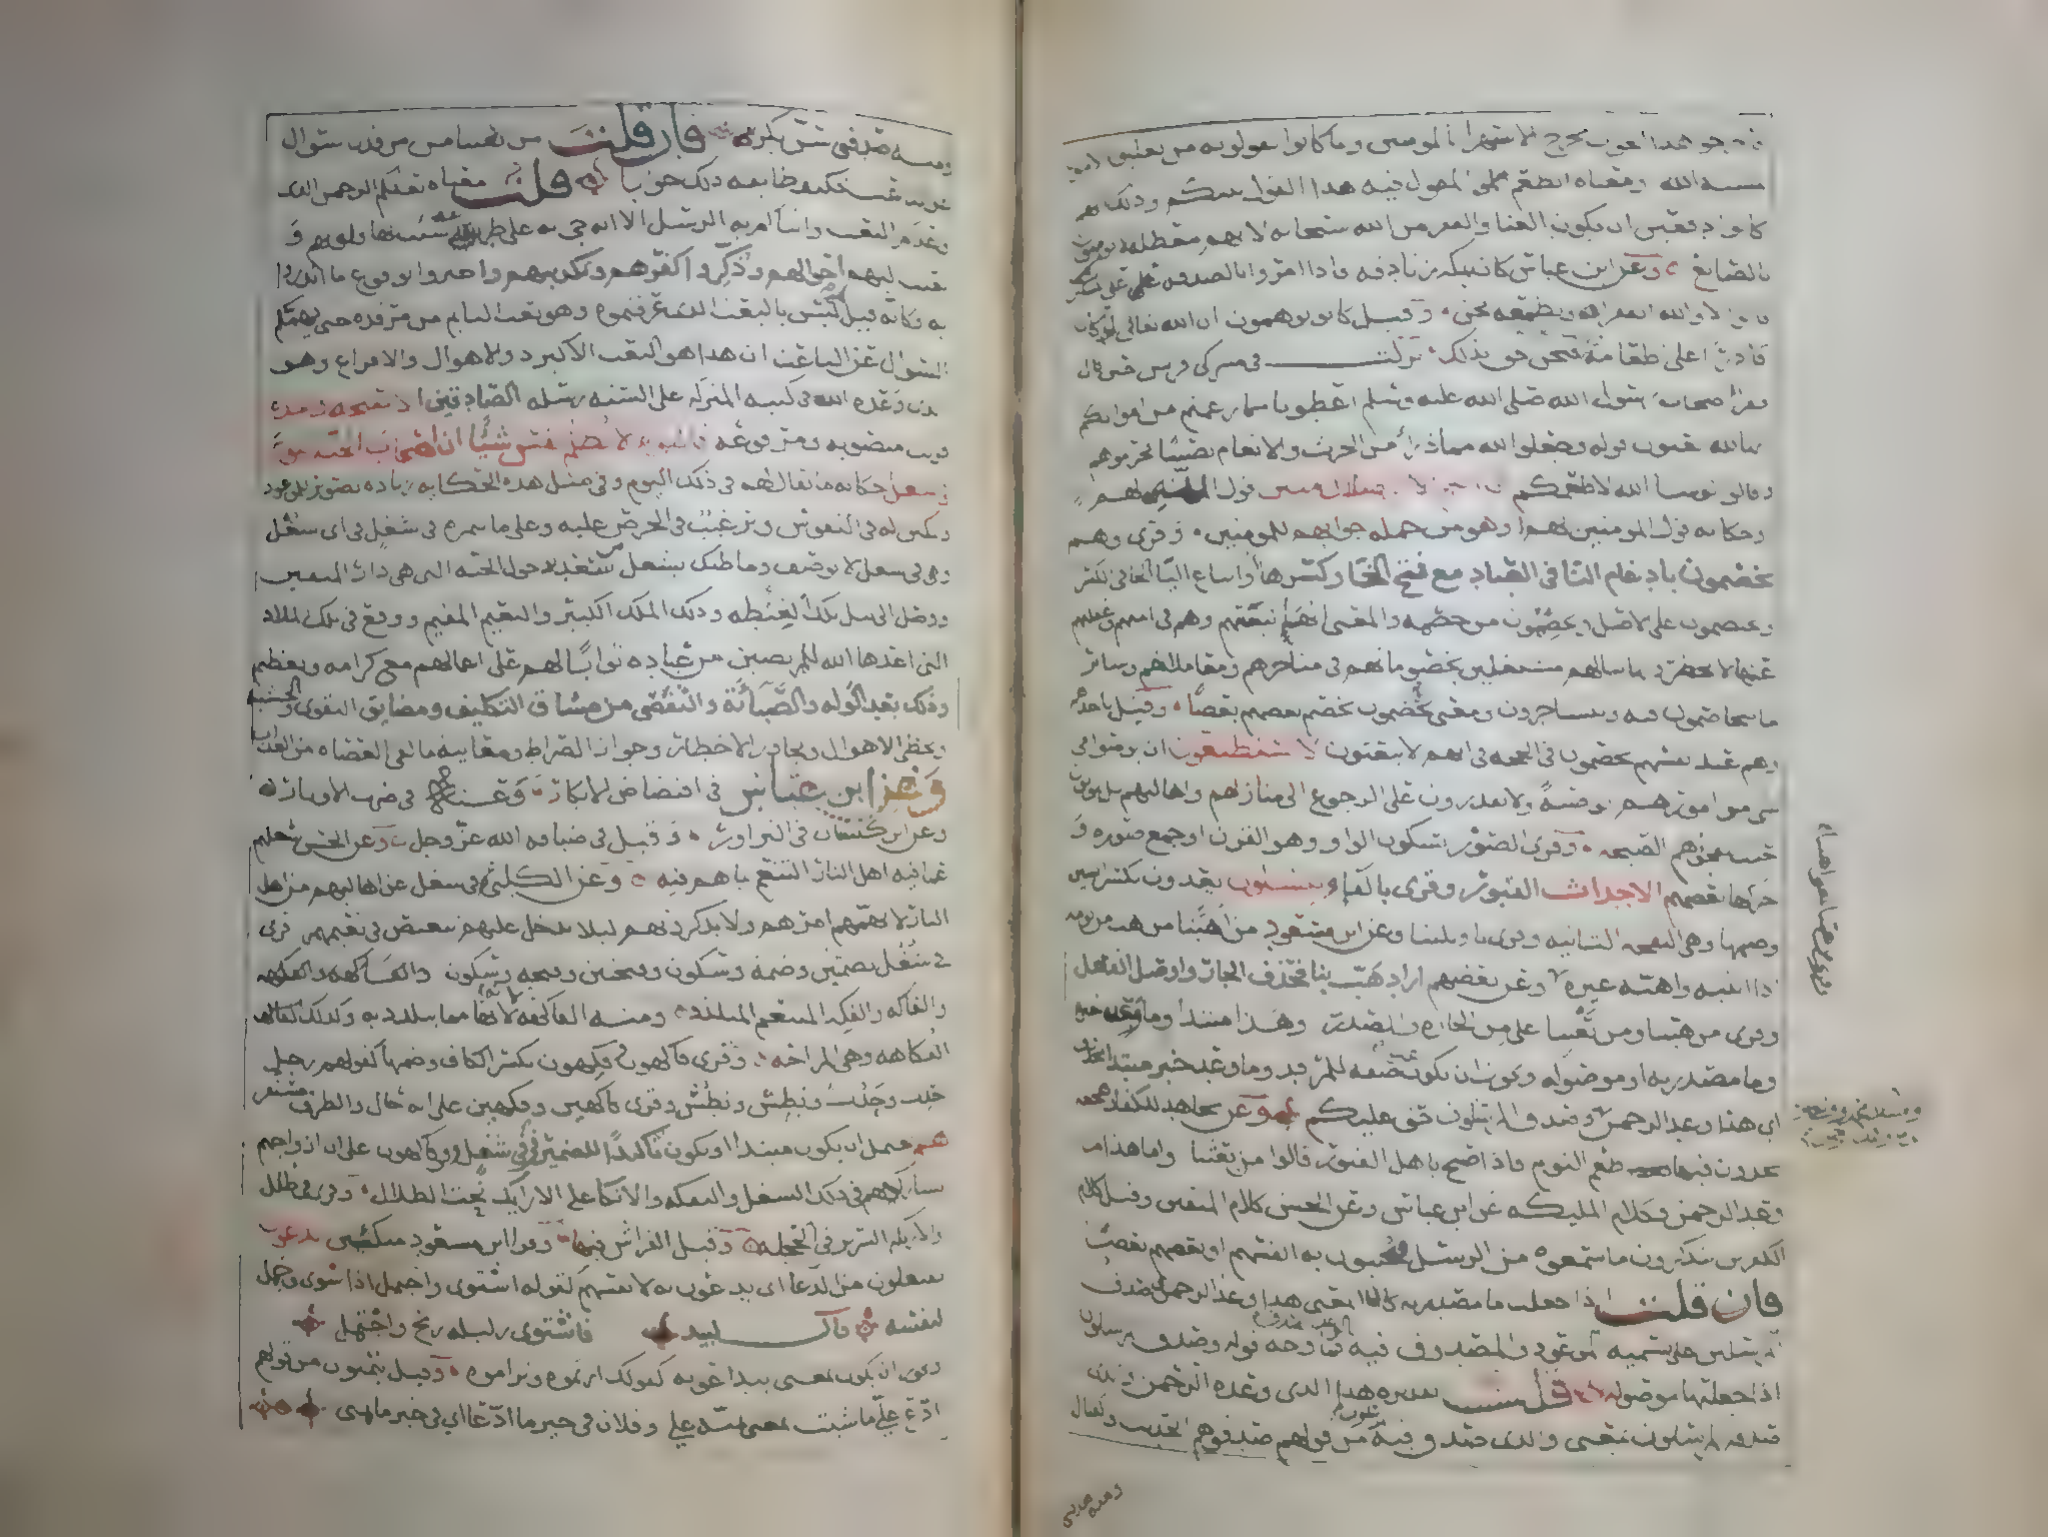 اخرجوا هذا الجواب مخرج الاستهزا بالمومنين وما كانوا يقولونه من تعليق الامور
بمشيئة الله ومعناه انطعم المقول فيه هذا القول بينكم وذلك انهم
كانوا دافعين ان يكون الغنا والفقر من الله سبحانه لانهم معطلة لا يومنون
بالصانع وعن ابن عباس كان بمكة زنادقة فاذا امروا بالصدقة على المساكين
قالوا لا والله ايفقره الله ونطعمه نحن وقيل كانوا يوهمون ان الله تعالى لو كان
قادرا على اطعامه فنحن احق بذلك نزلت في مشركي قريش حين قال
فقرا اصحاب رسول الله صلى الله عليه وسلم اعطونا مما زعمتم من اموالكم
انها لله يعنون قوله وجعلوا لله مما ذرأ من الحرث والانعام نصيبا فحرموهم
وقالوا لو شا الله لاطعمكم ضلال مبين قول الله لهم
وحكاية قول المومنين لهم او هو من جملة جوابهم للمومنين وقرى وهم
يخصمون بادغام التا في الصاد مع فتح الخا وكسرها واتباع اليا الخا في الكسر
ويختصمون على الاصل ويخصمون من خصمه والمعنى انها تبغتهم وهم في امنهم وغفلتهم
عنها لا يخطرونها ببالهم مشتغلين بخصوماتهم في متاجرهم ومعاملاتهم وساير
ما يتخاصمون فيه ويتشاجرون ومعنى يخصمون يخصم بعضهم بعضا وقيل تاخذهم
وهم عند انفسهم يخصمون في الحجة في انهم لا يبعثون لا يستطيعون ان يوصوا في
شي من امورهم توصية ولا يقدرون على الرجوع الى منازلهم واهاليهم بل يموتون
حيث تفجؤهم الصيحة وقرى الصور بسكون الواو وهو القرن او جمع صورة و
حركها بعضهم الاجداث القبور وقرى بالفاء ينسلون يعدون بكسر السين
وضمها وهي النفخة الثانية وقرى يا ويلتنا وعن ابن مسعود من اهبنا من هب من نومه
اذا انتبه واهبه غيره وعن بعضهم اراد هب بنا فحذف الجار واوصل الفعل
وقرى من هبنا ومن بعثنا على من الجارة والمصدر وهذا مبتدا وما وعد خبره
وما مصدرية او موصولة ويجوز ان يكون هذا صفة للمرقد وما وعد خبر مبتدا محذوف
اي هذا وعد الرحمن وصدق المرسلون حق عليكم وعن مجاهد للكفار هجعة
يجدون فيها طعم النوم فاذا صيح باهل القبور قالوا من بعثنا واما هذا ما
وعد الرحمن فكلام المليكة عن ابن عباس وعن الحسن كلام المتقين وقيل كلام
الكافرين يتذكرون ما سمعوه من الرسل فيجيبون به انفسهم او بعضهم بعضا
فان قلت اذا جعلت ما مصدرية كان المعنى هذا وعد الرحمن وصدق
المرسلين على تسمية الموعود والمصدوق فيه بالوعد والصدق فما وجه قوله وصدق المرسلون
اذا جعلتها موصولة قلت تقديره هذا الذي وعده الرحمن والذي
صدقه المرسلون بمعنى والذي صدق فيه المرسلون من قولهم صدقوهم الحديث والقتال
ومنه صدقني
ومنه صدقني سن بكره فان قلت من بعثنا من مرقدنا سوال
عن الباعث فكيف طابقه ذلك جوابا قلت معناه بعثكم الرحمن الذي
وعدكم البعث وانبأكم به الرسل الا انه جيء به على طريقة سيئت بها قلوبهم و
نعيت اليهم احوالهم وذكروا كفرهم وتكذيبهم واخبروا بوقوع ما انذروا
به وكانه قيل ليس بالبعث الذي عرفتموه وهو بعث النايم من مرقده حتى يهمكم
السوال عن الباعث ان هذا هو البعث الاكبر ذو الاهوال والافزاع وهو
الذي وعده الله في كتبه المنزلة على السنة رسله الصادقين الا صيحة واحدة
قريت منصوبة ومرفوعة فاليوم لا تظلم نفس شيا ان اصحاب الجنة اليوم
في شغل حكاية ما يقال لهم في ذلك اليوم وفي مثل هذه الحكاية زيادة تصوير للموعود
وتمكين له في النفوس وترغيب في الحرص عليه وعلى ما يثمره في شغل في اي شغل
وفي شغل لا يوصف وما ظنك بشغل من سعد بدخول الجنة التي هي دار المتقين
ووصل الى نيل تلك الغبطة وذلك الملك الكبير والنعيم المقيم ووقع في تلك الملاذ
التي اعدها الله للمرتضين من عباده ثوابا لهم على اعمالهم مع كرامة وتعظيم
وذلك بعد الوله والصبابة والتقصي من مشاق التكليف ومضايق التقوى والخشية
وتخطي الاهوال وتجاوز الاخطار وجواز الصراط ومعاينة ما لقي العصاة من العذاب
وعن ابن عباس في افتضاض الابكار وعنه في ضرب الاوتار
وعن ابن كيسان في التزاور وقيل في ضيافة الله عز وجل وعن الحسن شغلهم
عما فيه اهل النار التنعم بما هم فيه وعن الكلبي هم في شغل عن اهاليهم من اهل
النار لا يهمهم امرهم ولا يذكرونهم ليلا يدخل عليهم تنغيص في نعيمهم قرى
في شغل بضمتين وضمة وسكون وفتحتين وفتحة وسكون والفاكه والفكه
والفاكه والفكه المتنعم المتلذذ ومنه الفاكهة لانها مما يتلذذ به وكذلك الفكاهة
الفكاهة وهي المزاحة وقرى فاكهون وفكهون بكسر الكاف وضمها كقولهم رجل
حدث وحدث ونطس ونطس وقرى فاكهين وفكهين على انه حال والظرف مستقر
هم يحتمل ان يكون مبتدا او يكون تاكيدا للضمير في في شغل وفي فاكهون على ان ازواجهم
يشاركنهم في ذلك الشغل والتفكه والاتكا على الارايك تحت الظلال وقرى في ظلل
والاريكة السرير في الحجلة وقيل الفراش فيها وقرا ابن مسعود متكئين يدعون
يفتعلون من الدعا اي يدعون به لانفسهم كقوله اشتوى واجتمل اذا شوى وجمل
لنفسه قال لبيد فاشتوى ليلة ريح واجتمل
ويجوز ان يكون بمعنى يتداعونه كقولك ارتموه وتراموه وقيل يتمنون من قولهم
ادع علي ما شئت بمعنى تمنه علي وفلان في خير ما ادعى اي في خير ما تمنى